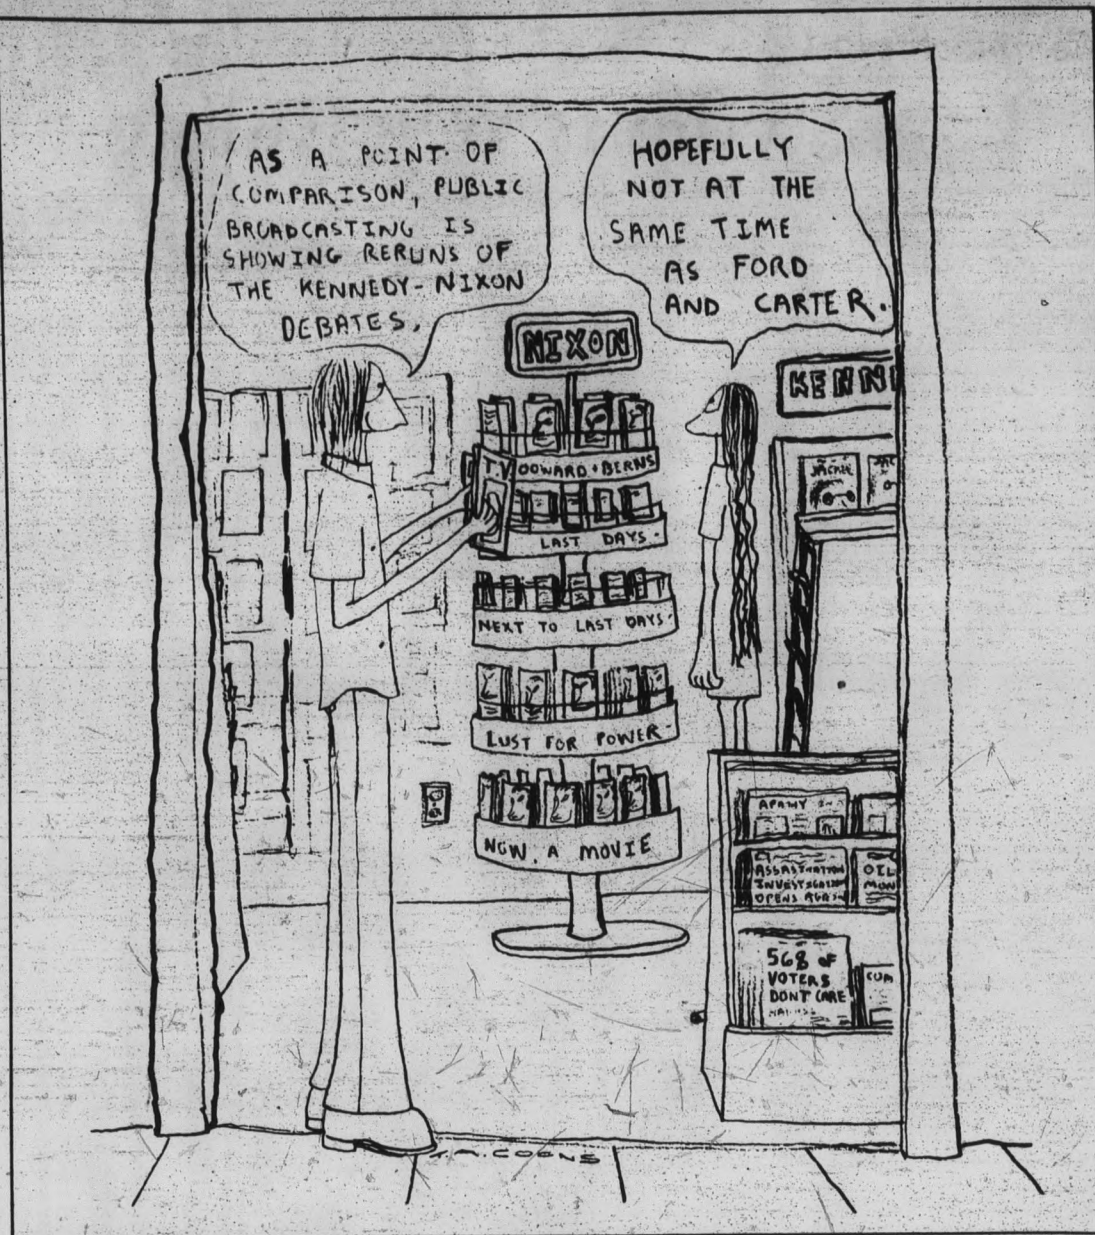 AS A POINT OF
COMPARISON, PUBLIC
BROADCASTING IS
SHOWING RERUNS OF
THE KENNEDY-NIXON
DEBATES.
HOPEFULLY
NOT AT THE
SAME TIME
AS FORD
AND CARTER.
NIXON
KENN
JACKIE
T.V
OODWARD + BERNS
LAST DAYS.
NEXT TO LAST DAYS.
LUST FOR POWER
NOW, A MOVIE
APATHY IN
ASSASINATION
INVESTIGATION
OPENS AGAIN
OIL
MON
568 OF
VOTERS
DONT CARE
COONS